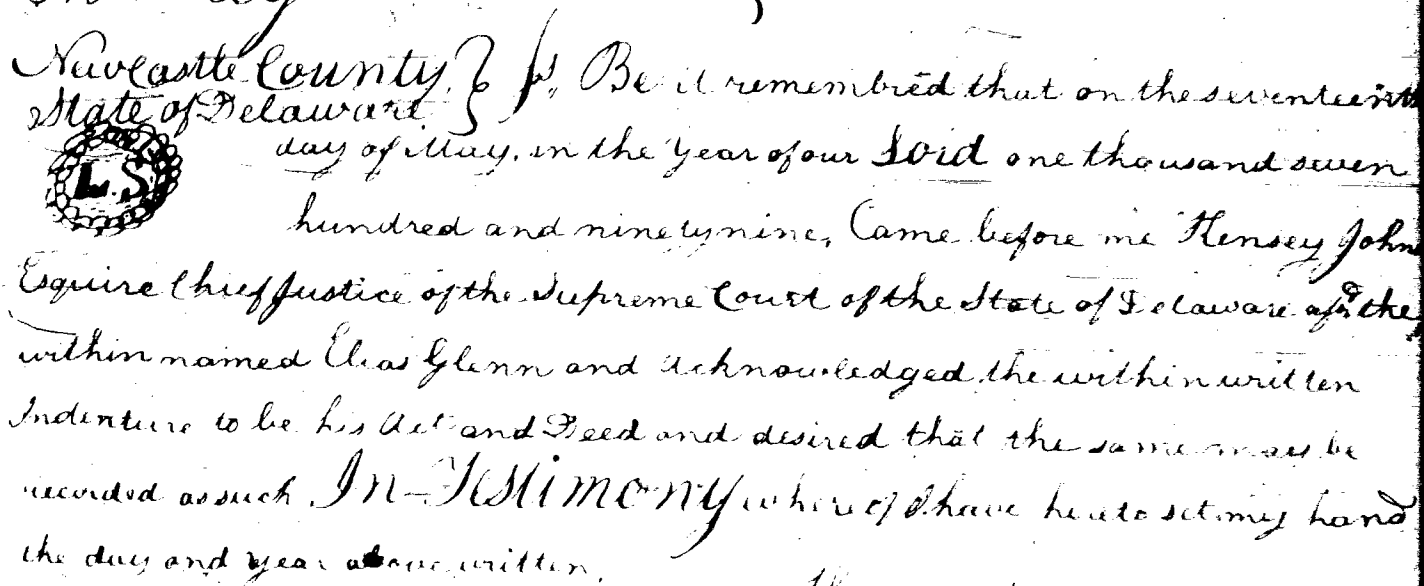 Newcastle County
State of Delaware } ss. Be it remembred that on the seventeenth
L.S
day of May, in the Year of our Lord one thousand seven
hundred and ninety nine, Came before me Kensey John
Esquire Chief Justice of the Supreme Court of the State of Delaware afsd the
within named Elias Glenn and acknowledged the within written
Indenture to be his Act and Deed and desired that the same may be
recorded as such. In Testimony whereof I have hereto set my hand
the day and year above written.